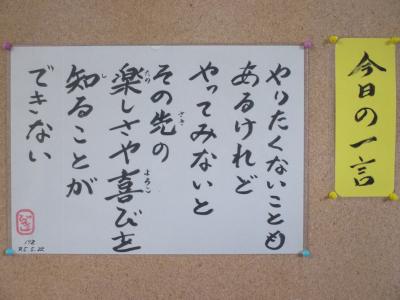 今日の一言
やりたくないことも
あるけれど
やってみないと
その先の
楽しさや喜びを
知ることが
できない
198
R5.5.22